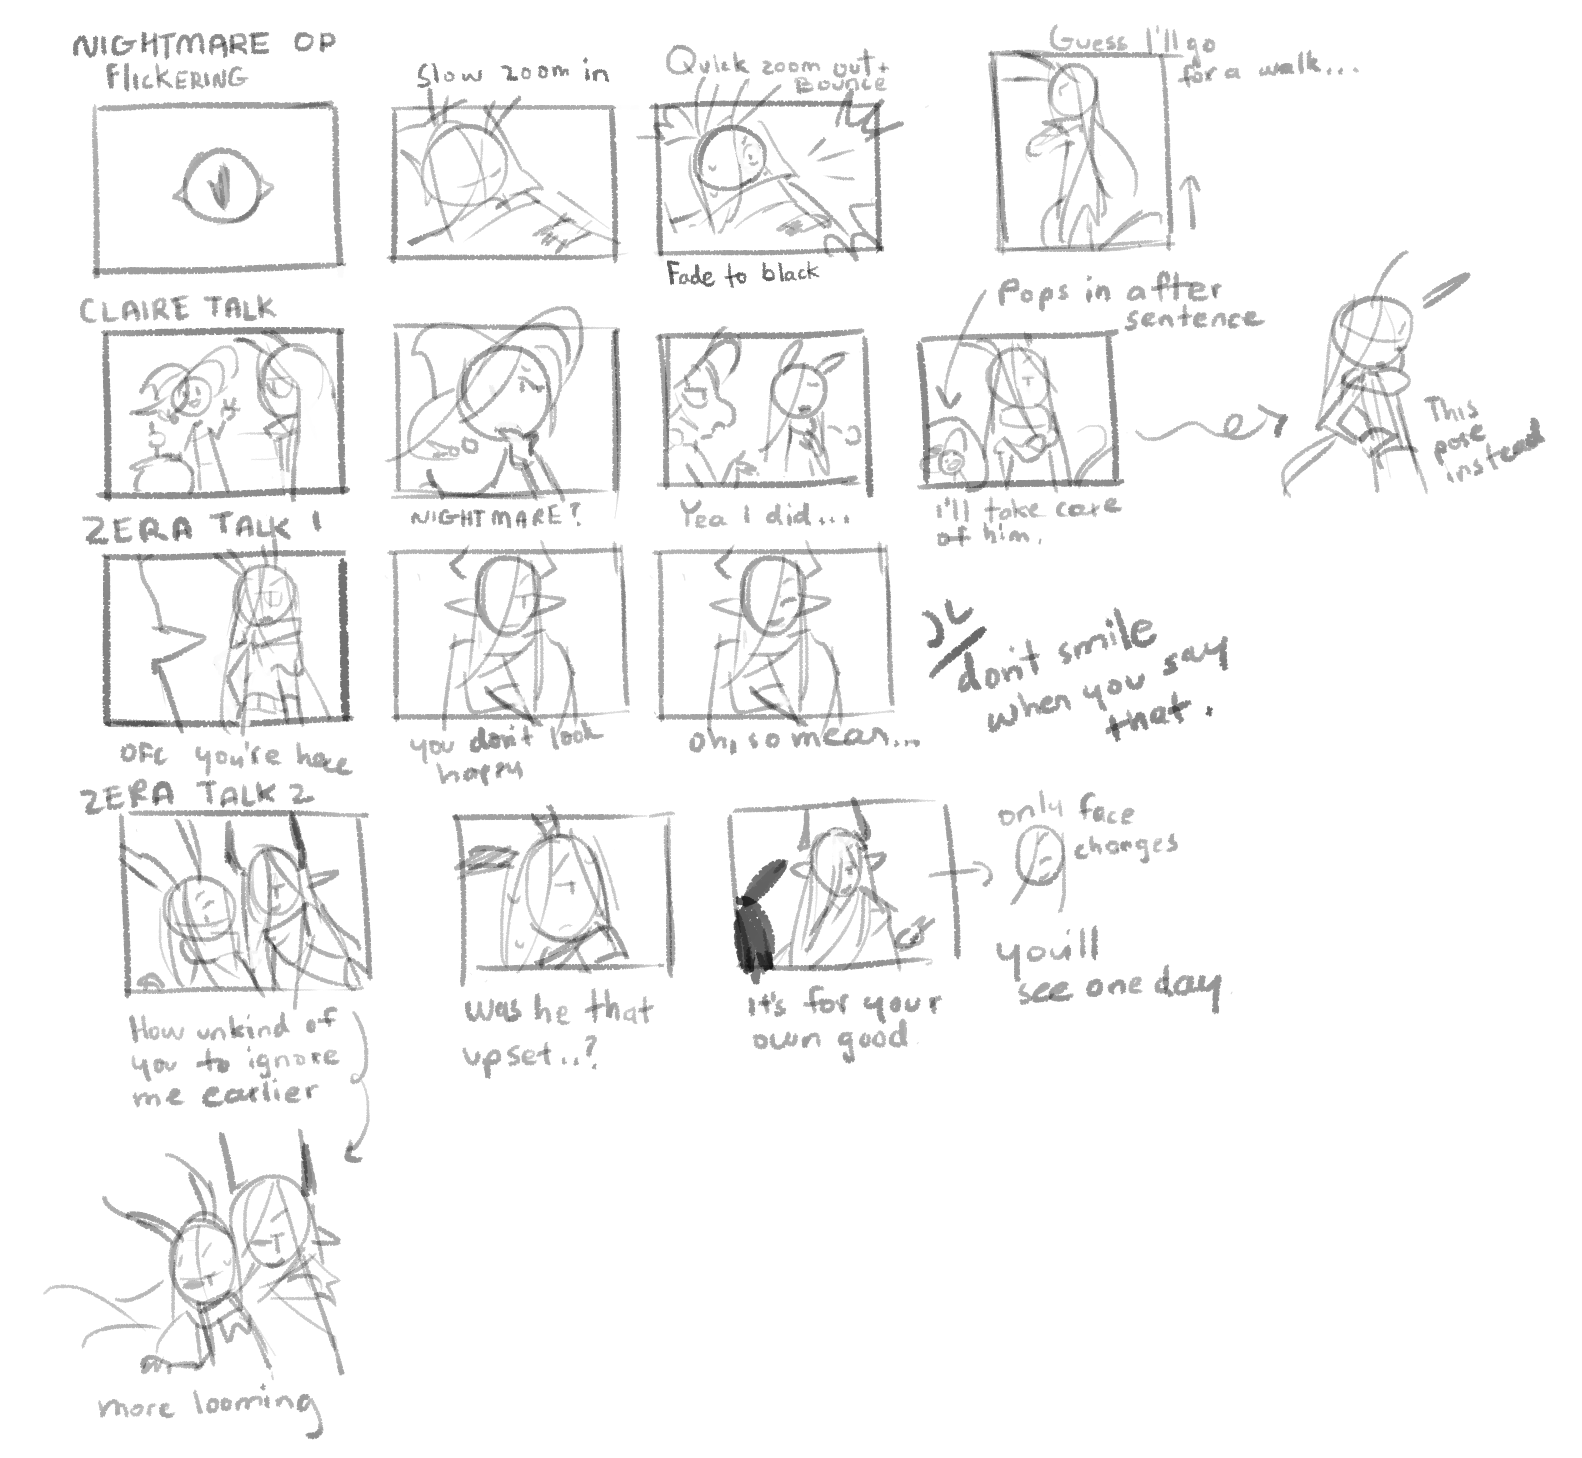 NIGHTMARE OP
FLICKERING
Slow zoom in
Quick zoom out +
Bounce
Fade to black
Guess I'll go
for a walk...
CLAIRE TALK
NIGHTMARE?
Yea I did...
Pops in after
sentence
I'll take care
of him.
This
pose
instead
ZERA TALK 1
OFC you're here
you don't look
happy
oh, so mean...
don't smile
when you say
that.
ZERA TALK 2
How unkind of
you to ignore
me earlier
was he that
upset..?
It's for your
own good
only face
changes
you'll
see one day
more looming